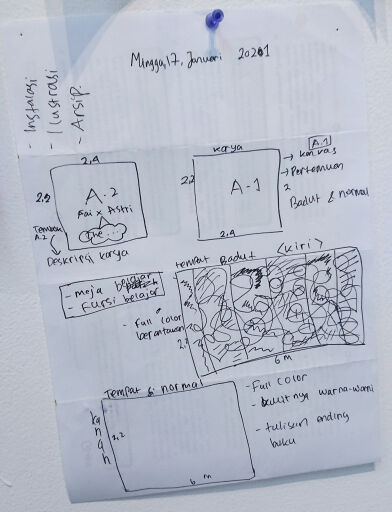 Minggu, 17, Januari 2021
- Instalasi
- Ilustrasi
- Arsip.
2,4
2,2
A.2
Fai x Astri
The...
Tembok A.2
Deskripsi karya
karya
2,2
A-1
2,4
A.1
→ kanvas
→ Pertemuan
2
Badut & normal
- meja belajar
- kursi belajar
- Full color
berantakan
Tempat Badut <Kiri>
2,2
6 m
Tempat & normal
kanan
2,2
6 m
- Full color
- kulitnya warna-warni
- tulisan ending
buku